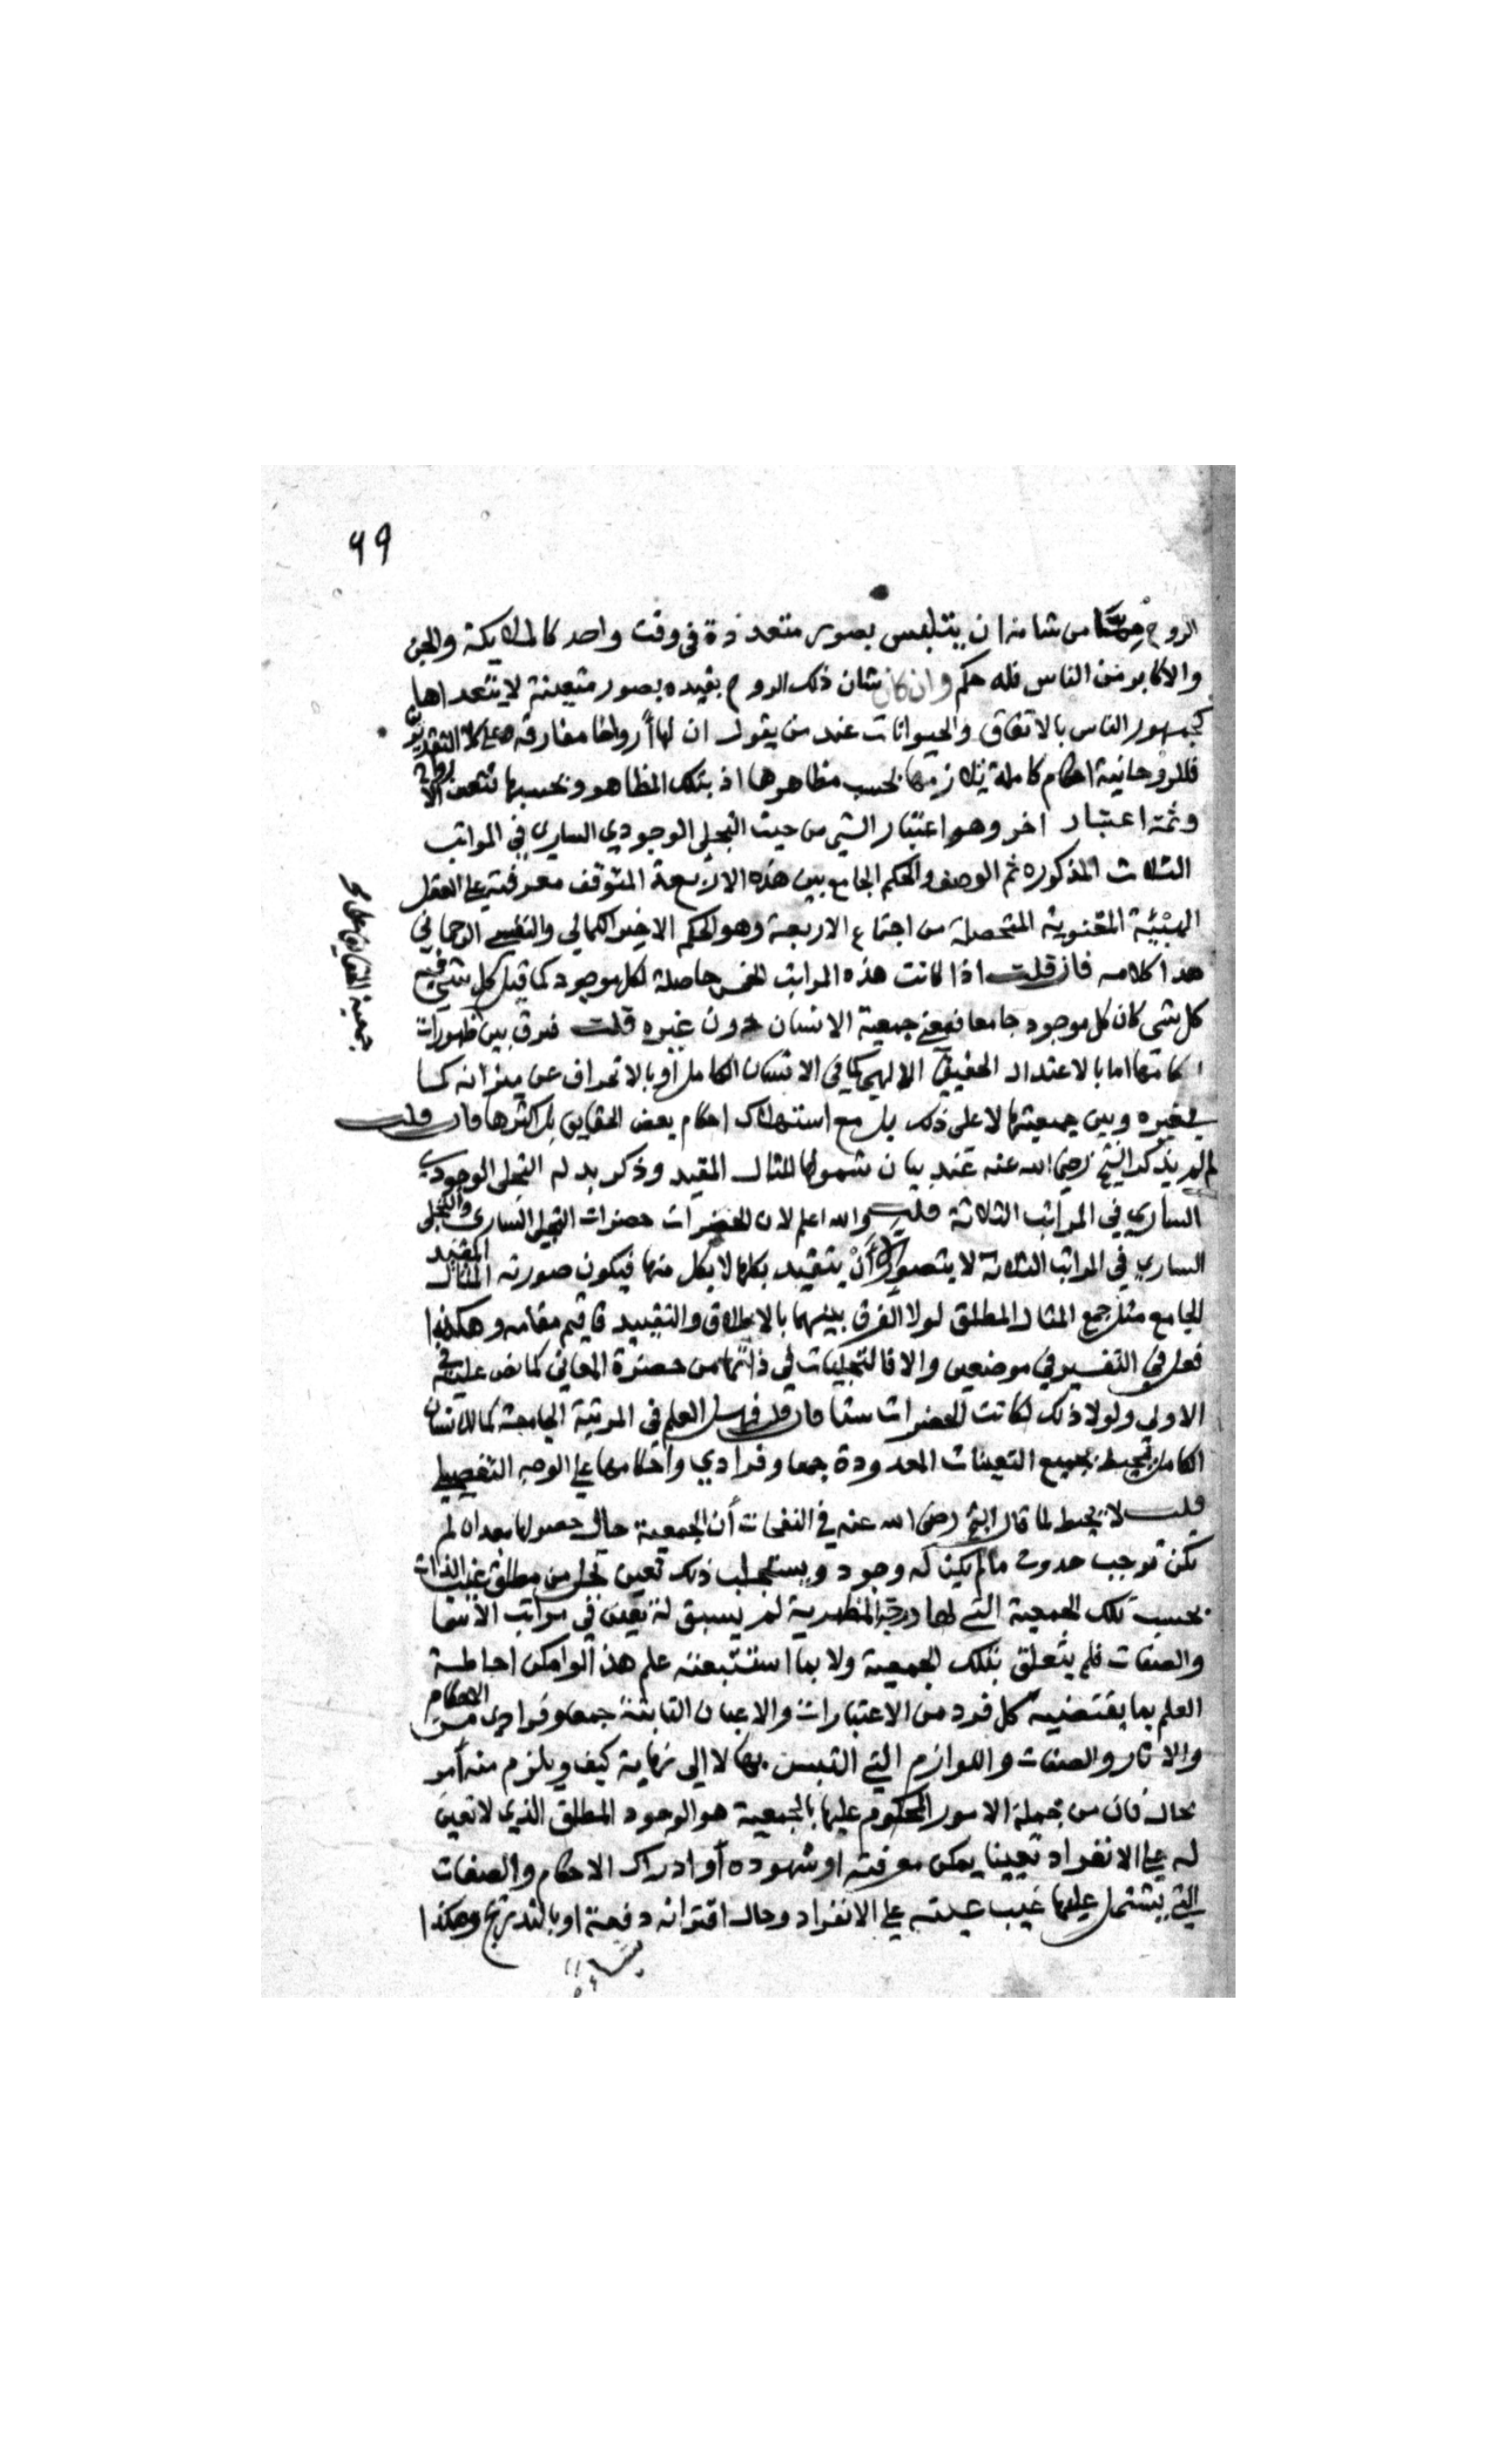 ٩٩
الروح من شانه ان يتلبس بصور متعددة فى وقت واحد كالملايكة والجن
والاكابر من الناس فله حكم وان كان شان ذلك الروح بقيده بصور متعينة لا يتعداها
كجمهور الناس بالاتفاق والحيوانات عند من يقول ان لها أرواحا مفارقة فعلى كلا التقديرين
فللروحانية احكام كاملة يلازمها بحسب مظاهرها اذ بتلك المظاهر وبحسبها تتعين الارواح
وثمة اعتبار اخر وهو اعتبار الشي من حيث التجلي الوجودي الساري في المراتب
الثلاث المذكوره ثم الوصف والحكم الجامع بين هذه الاربعة المتوقف معرفته على تعقل
الهيئية المعنوية المتحصلة من اجتماع الاربعة وهو الحكم الاخير الكمالي والنفس الرحماني
هذا كلامه فان قلت اذا كانت هذه المراتب الخمس حاصلة لكل موجود كما قيل كل شي فيه
كل شى كان كل موجود جامعا فمعنى جمعية الانسان دون غيره قلت فرق بين ظهورات
احكامها اما بالاعتدال الحقيقي الالهي كما في الانسان الكامل أو بالانحراف عن ميزانه كما
في غيره وبين جمعيتها لا على ذلك بل مع استهلاك احكام بعض الحقايق بل اكثرها فان قلت
لم لم يذكر الشيخ رضي الله عنه عند بيان شمولها المثال المقيد وذكر بدله التجلى الوجودي
الساري في المراتب الثلاثة قلت والله اعلم لان الحضرات حضرات التجلي الساري والتجلى
الساري في المراتب الثلاثة لا يتصور الا أن يتقيد بكلها لا بكل منها فيكون صورته المثال المقيد
الجامع مثل جمع المثال المطلق لولا الفرق بينهما بالاطلاق والتقييد فاقيم مقامه وهكذا
فعل في التفسير في موضعين والا فالتجليات في ذاتها من حضرة المعاني كما نص عليه في
الاولي ولولا ذلك لكانت الحضرات ستا فان قلت فهل العلم في المرتبة الجامعة كما للانسان
الكامل يحيط بجميع التعينات المعدودة جمعا وفرادي واحكامها على الوجه التفصيلي
قلت لا يحيط لما قال الشيخ رضى الله عنه في النفحات أن الجمعية حال حصولها بعد ان لم
تكن توجب حدوث ما لم يكن له وجود ويستجلب ذلك تعين تجل من مطلق غيب الذات
بحسب تلك الجمعية التي لها درجة المظهرية لم يسبق له تعين في مراتب الأسما
والصفات فلم يتعلق بتلك الجمعية ولا بما استتبعته علم هذا لو امكن احاطة
العلم بما يقتضيه كل فرد من الاعتبارات والاعيان الثابتة جمعا وفرادى من الاحكام
والاثار والصفات واللوازم التي التبس بها لا الى نهاية كيف ويلزم منه أمر
محال فان من جملة الامور المحكوم عليها بالجمعية هو الوجود المطلق الذي لا تعين
له على الانفراد تعينا يمكن معرفته او شهوده أو ادراك الاحكام والصفات
التي يشتمل عليها غيب عينه على الانفراد وحال اقترانه دفعة او بالتدريج وهكذا